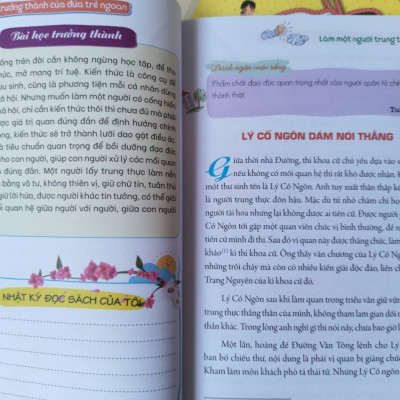 trưởng thành của đứa trẻ ngoan
Bài học trưởng thành
sống trên đời cần không ngừng học tập, để thu
thức, mở mang trí tuệ. Kiến thức là công cụ để
sinh, cũng là phương tiện mỗi cá nhân dùng
hội. Nhưng muốn làm một người có cống hiến
hội, chỉ cần kiến thức thôi thì chưa đủ mà phải
được giá trị quan đúng đắn để định hướng chính
không, kiến thức sẽ trở thành lưỡi dao gạt điều ác.
là tiêu chuẩn quan trọng để bồi dưỡng đạo đức
cho con người, giúp con người xử lý các mối quan
đúng đắn. Một người lấy trung thực làm nền
bằng vô tư, không thiên vị, giữ chữ tín, tuân thủ
giữ lời hứa, được khác tin tưởng, có thể giải
quan hệ giữa người với người, giữa con người
NHẬT KÝ ĐỌC SÁCH CỦA TÔI
Làm một người trung t
Danh ngôn cuộc sống
Phẩm chất đạo đức quan trọng nhất của người quân tử chín
thành thật.
Tu
LÝ CỐ NGÔN DÁM NÓI THẲNG
Giữa thời nhà Đường, thi khoa cử chủ yếu dựa vào s
nếu không có mối quan hệ thì rất khó được nhận. K
một thư sinh tên là Lý Cố Ngôn. Anh tuy xuất thân thấp ké
là người trung thực đôn hậu. Mặc dù từ nhỏ chăm chỉ họ
người tài hoa nhưng lại không được ai tiến cử. Được người g
Cố Ngôn tới gặp một quan viên chức vị bình thường, để n
tiến cử mình đi thi. Sau đó vị quan này được thăng chức, làm
khảo(1) kì thi khoa cử. Ông thấy văn chương của Lý Cố Ngôn
những trôi chảy mà còn có nhiều kiến giải độc đáo, liền ch
Trạng Nguyên của kì khoa cử đó.
Lý Cố Ngôn sau khi làm quan trong triều vẫn giữ vữn
trung thực thẳng thắn của mình, không tham lam gian dối n
thần khác. Trong lòng anh nghĩ gì thì nói nấy, chưa bao giờ l
Một lần, hoàng đế Đường Văn Tông lệnh cho Lý
ban bố chiếu thư, nội dung là phái vị quan bị giáng chức
Kham làm môn khách phò tá thái tử. Nhưng Lý Cố Ngôn